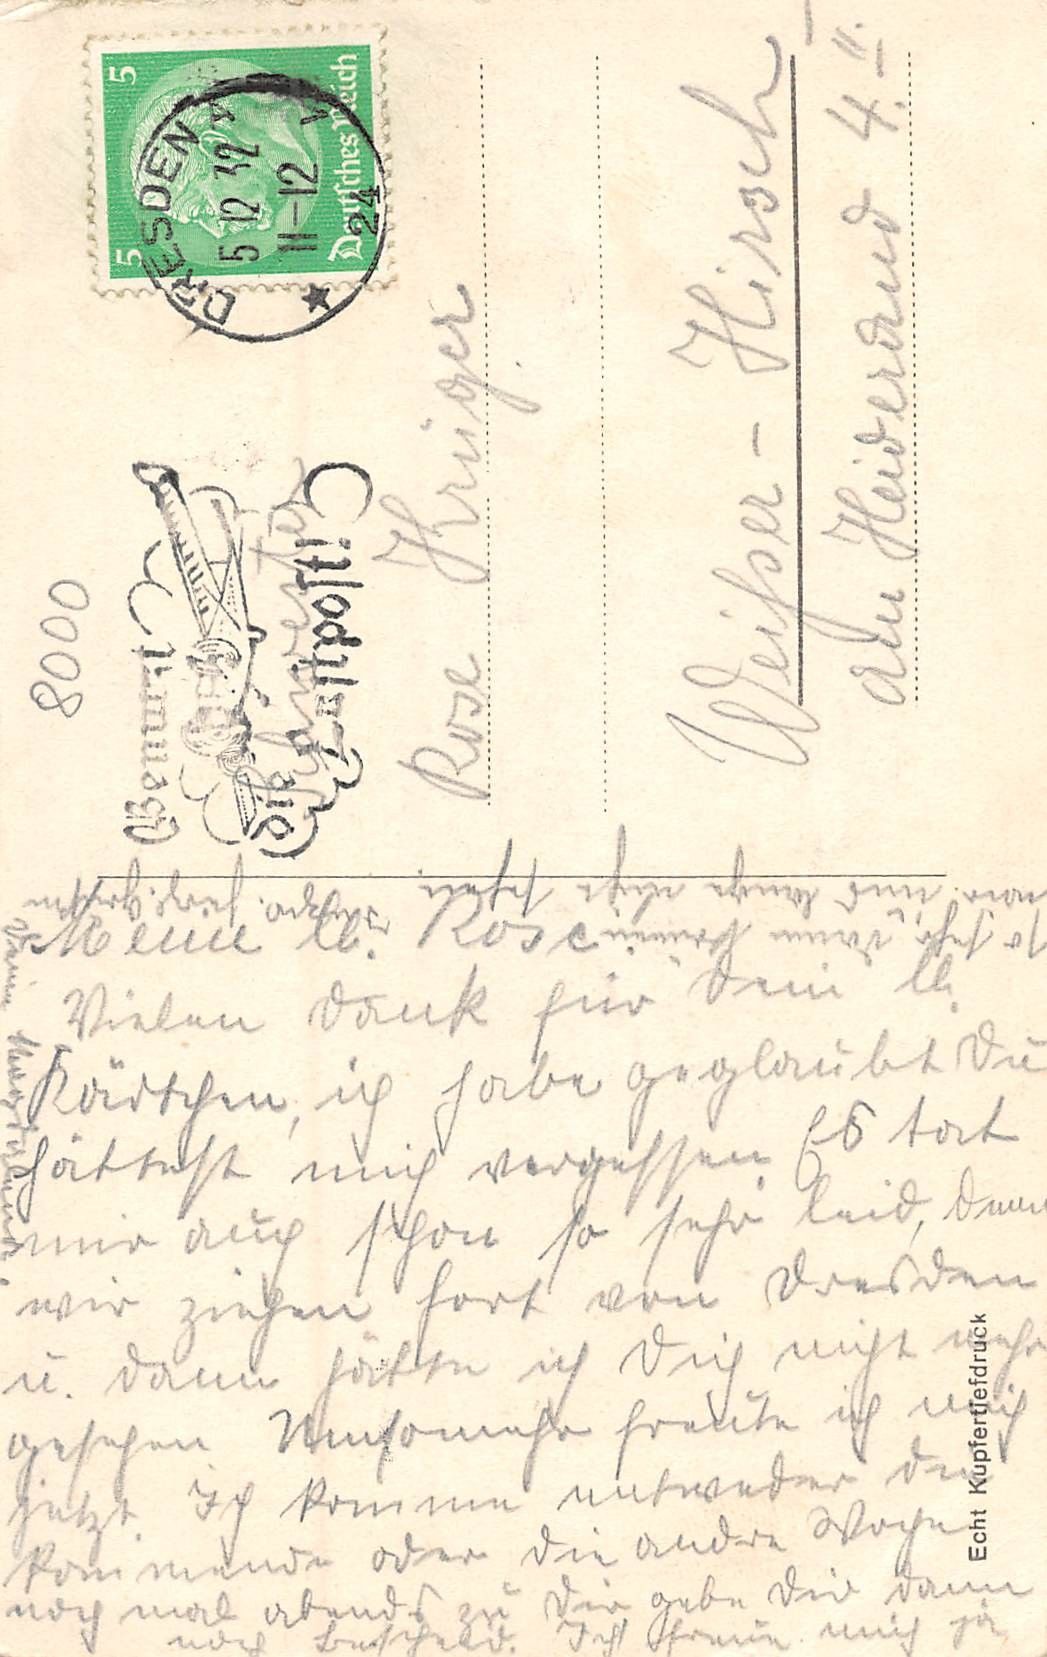 5
5
Deutsches Reich
DRESDEN
5 12 32
11-12
24
Benutzt
die Luftpost!
8000
Schwester
Rose Krüger
Weißer-Hirsch
am Heiderand 4. II.
Meine lb. Rose
Vielen Dank für Dein lb.
Kärtchen, ich habe geglaubt Du
hättest mich vergessen Es tat
mir auch schon so sehr leid, denn
wir ziehen fort von Dresden
u. dann hätte ich Dich nicht mehr
gesehen Umsomehr freute ich mich
jetzt. Ich komme entweder die
kommende oder die andre Woche
noch mal abends zu Dir gebe Dir dann
noch Bescheid. Ich freue mich ja
so sehr, denn
war und
Echt Kupfertiefdruck